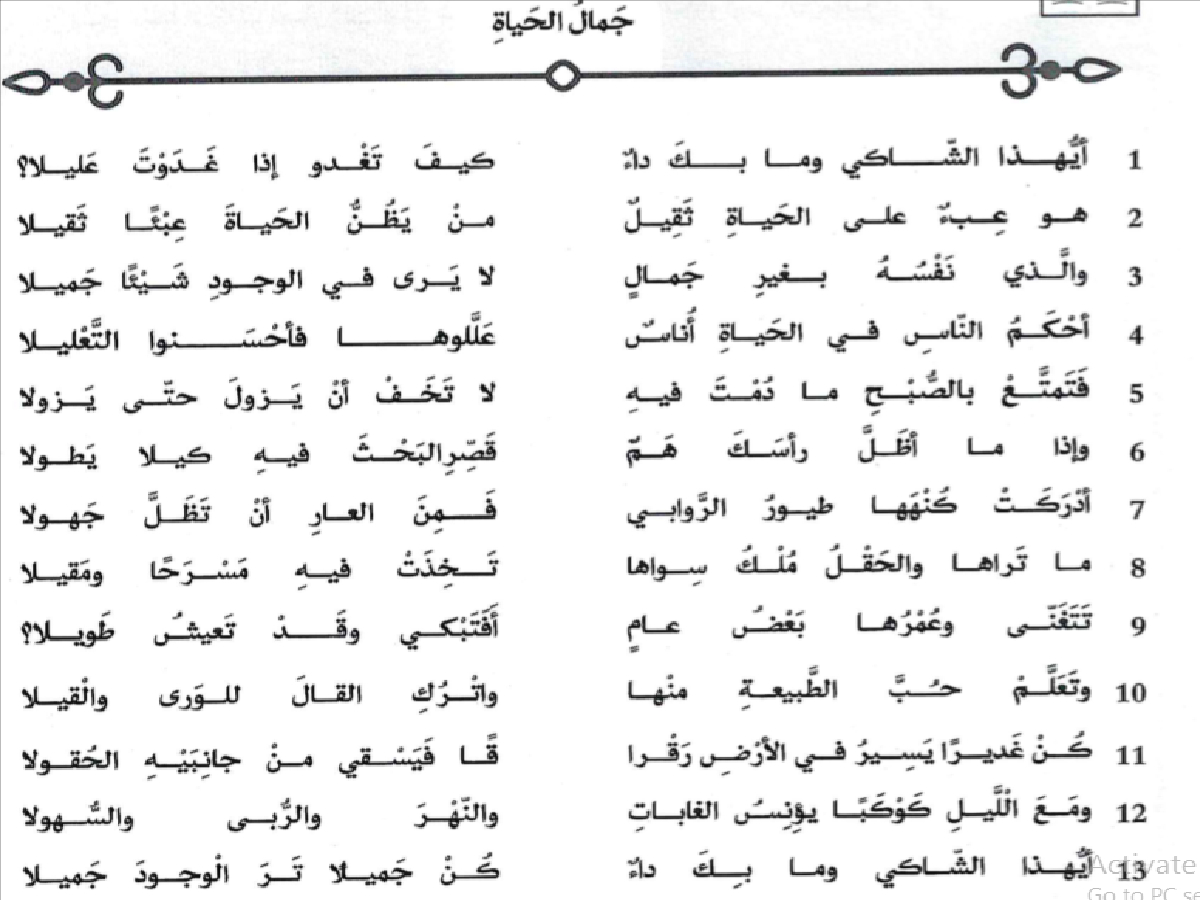 جَمالُ الحَياةِ
1 أيُّهـذا الشّـاكي ومـا بـكَ داءٌ كيـفَ تَغْـدو إذا غَـدَوْتَ عَليـلا؟
2 هـو عِـبءٌ علـى الحَيـاةِ ثَقِيـلٌ مـنْ يَظُـنُّ الحَيـاةَ عِبْئًـا ثَقيـلا
3 والَّـذي نَفْسُـهُ بـغيرِ جَمـالٍ لا يَـرى فـي الوجـودِ شَـيْئًا جَميـلا
4 أحْكَـمُ النّاسِ فـي الحَيـاةِ أُناسٌ عَلَّلوهـا فأحْسَـنوا التَّعْليـلا
5 فَتَمتَّـعْ بالصُّبْـحِ مـا دُمْـتَ فيـهِ لا تَخَـفْ أنْ يَـزولَ حتّـى يَـزولا
6 وإذا مـا أظَـلَّ رأسَـكَ هَـمٌّ قَصِّرِالبَحْـثَ فيـهِ كيـلا يَطـولا
7 أدْرَكَـتْ كُنْهَهـا طيـورُ الرَّوابـي فَـمِنَ العـارِ أنْ تَظَـلَّ جَهـولا
8 مـا تَراهـا والحَقْـلُ مُلْـكُ سِـواها تَـخِذَتْ فيـهِ مَسْـرَحًا ومَقيـلا
9 تَتَغَنّـى وعُمْرُهـا بَعْضُ عـامٍ أَفَتَبْكـي وقَـدْ تَعيشُ طَويـلا؟
10 وتَعَلَّـمْ حـبَّ الطَّبيعـةِ منْهـا واتْـرُكِ القـالَ للـوَرى والْقيـلا
11 كُـنْ غَديـرًا يَسِـيرُ فـي الأرْضِ رَقْـرا قًـا فَيَسْـقي مـنْ جانِبَيْـهِ الحُقـولا
12 ومَـعَ الْلَّيـلِ كَوْكَبًـا يؤنِسُ الغابـاتِ والنّهْـرَ والرُّبـى والسُّـهولا
13 أيُّهذا الشّـاكي ومـا بـكَ داءٌ كُـنْ جَميـلًا تَـرَ الْوجـودَ جَميـلا
Activate
Go to PC se